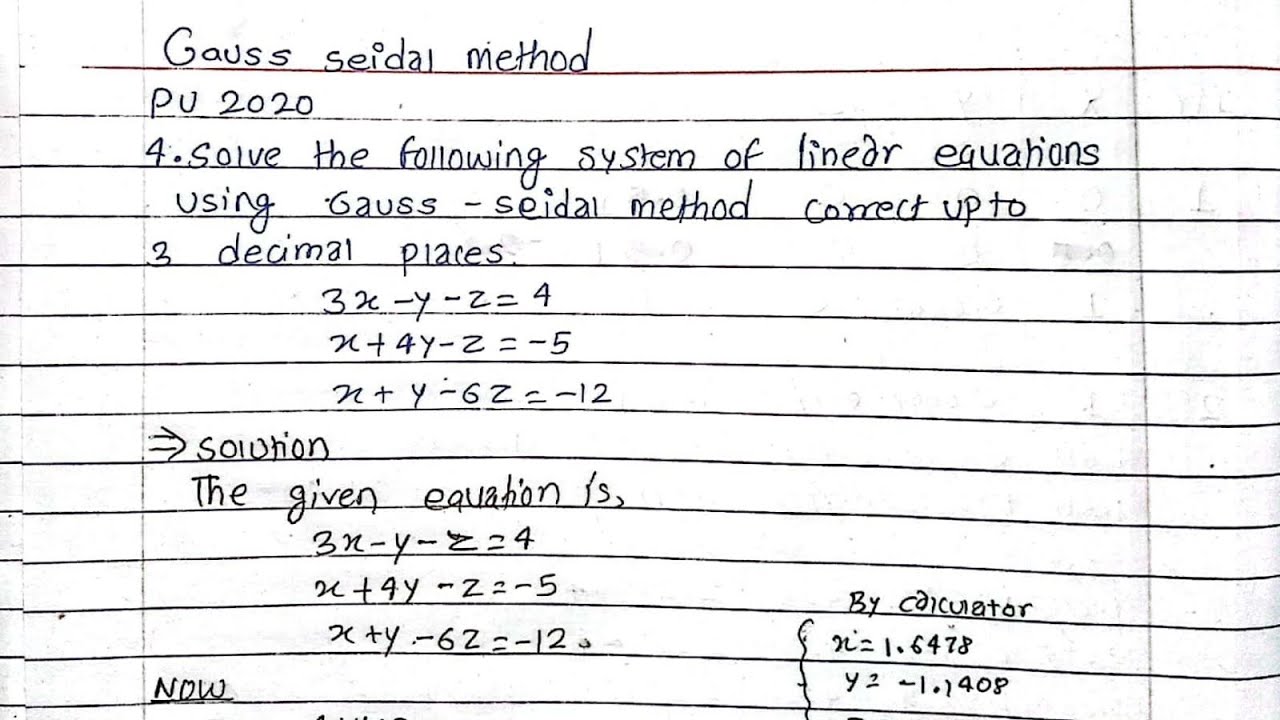 Gauss seidal method
PU 2020
4. Solve the following system of linear equations
using Gauss - seidal method correct up to
3 decimal places.
3x - y - z = 4
x + 4y - z = -5
x + y - 6z = -12
⇒ solution
The given equation is,
3x - y - z = 4
x + 4y - z = -5
x + y - 6z = -12.
By calculator
x = 1.6478
y = -1.1408
NOW